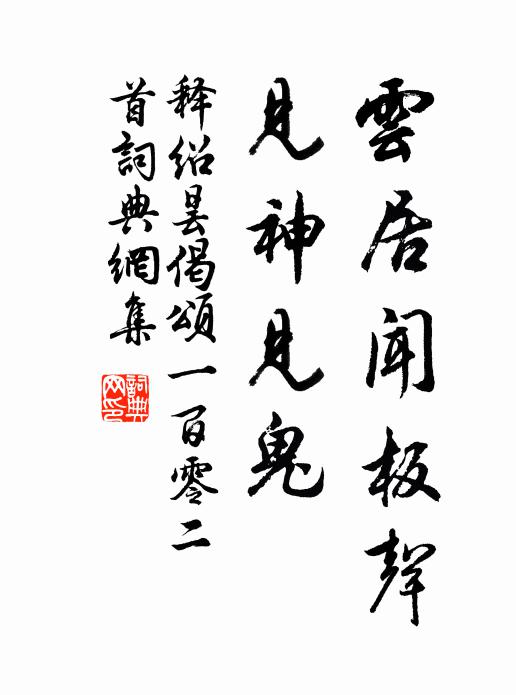 雲居闻板聲
見神見鬼
释绍曇偈頌一百零二
首詞典網集
詞典网印